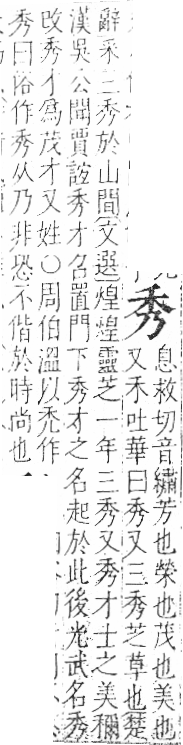 秀息救切音繡芳也榮也茂也美也
又禾吐華曰秀又三秀芝草也楚
辭采三秀於山間文選煌煌靈芝一年三秀又秀才士之美稱
漢吳公聞賈誼秀才召置門下秀才之名起於此後光武名秀
改秀才爲茂才又姓○周伯溫以禿作
秀曰俗作秀从乃非恐不偕於時尚也